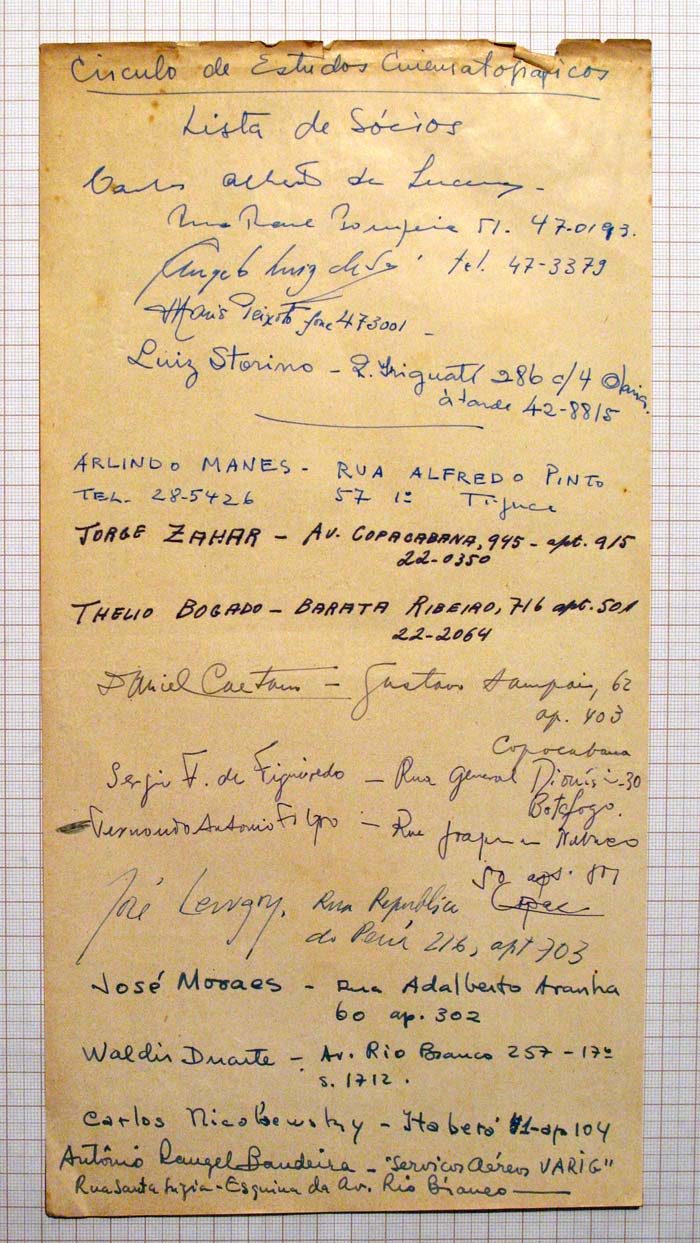 Circulo de Estudos Cinematográficos
Lista de Sócios
Carlos Alberto de
Rua Raul Pompeia 51. 47-0193.
Angelo Luiz de Sá tel. 47-3379
Mario Peixoto fone 473001 -
Luiz Storino - R. 286 c/4 Olaria.
à tarde 42-8815
ARLINDO MANES - RUA ALFREDO PINTO
TEL. 28-5426 57 1º Tijuca
JORGE ZAHAR - AV. COPACABANA, 945 - apt. 915
22-0350
THELIO BOGADO - BARATA RIBEIRO, 716 apt. 501
22-2064
Daniel Caetano - Gustavo Sampaio, 62
ap. 403
Copacabana
Sergio F. de Figueiredo - Rua General Dionísio - 30
Botafogo.
Antonio - Rua Joaquim Nabuco
50
José Rua Republica
do Perú 216, apt 703
José Moraes - Rua Adalberto Aranha
60 ap. 302
Waldir Duarte - Av. Rio Branco 257 - 17º
s. 1712.
Carlos - ap 104
Antônio Rangel Bandeira - "Serviços Aéreos VARIG"
Rua Santa Luzia - Esquina da Av. Rio Branco